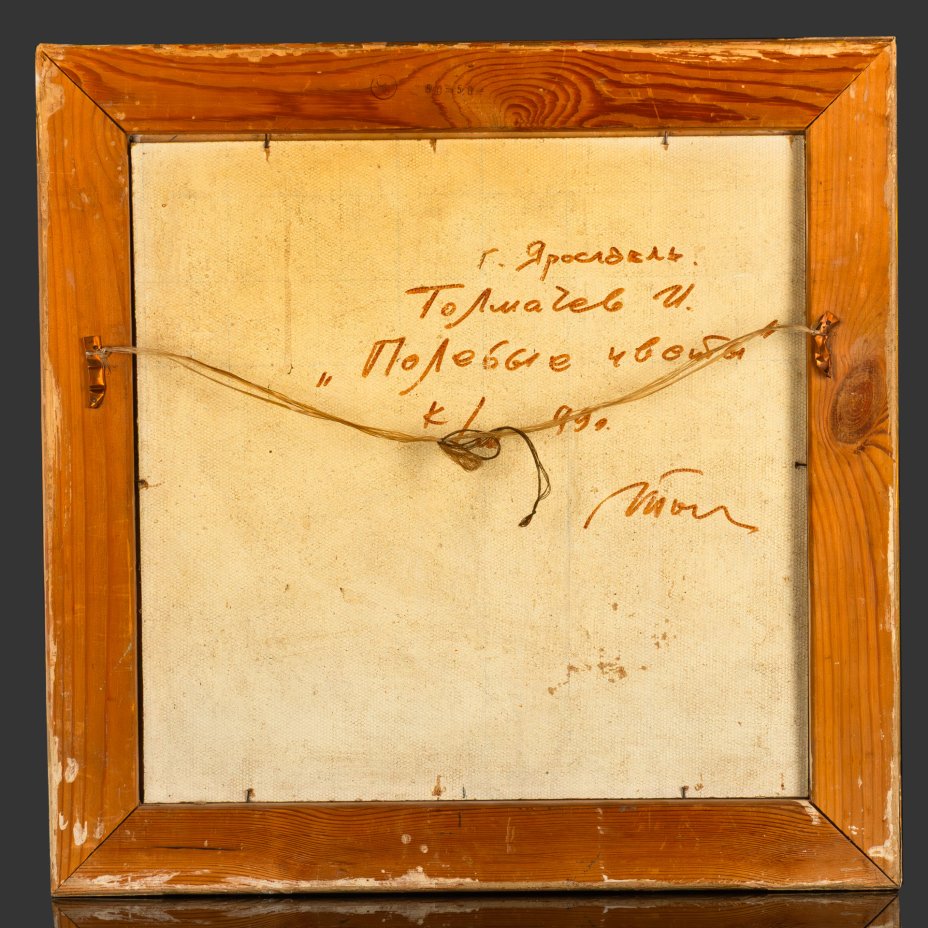 50×50
г. Ярославль.
Толмачев И.
„Полевые цветы"
к/м 79г.